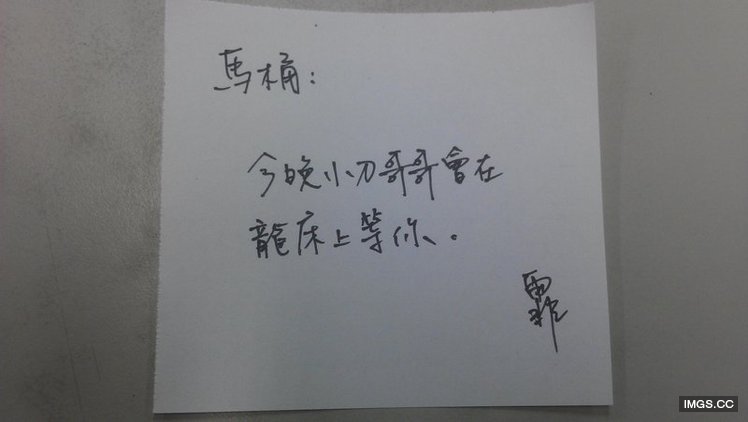 馬桶：
今晚小刀哥哥會在
龍床上等你。
霏
IMGS.CC